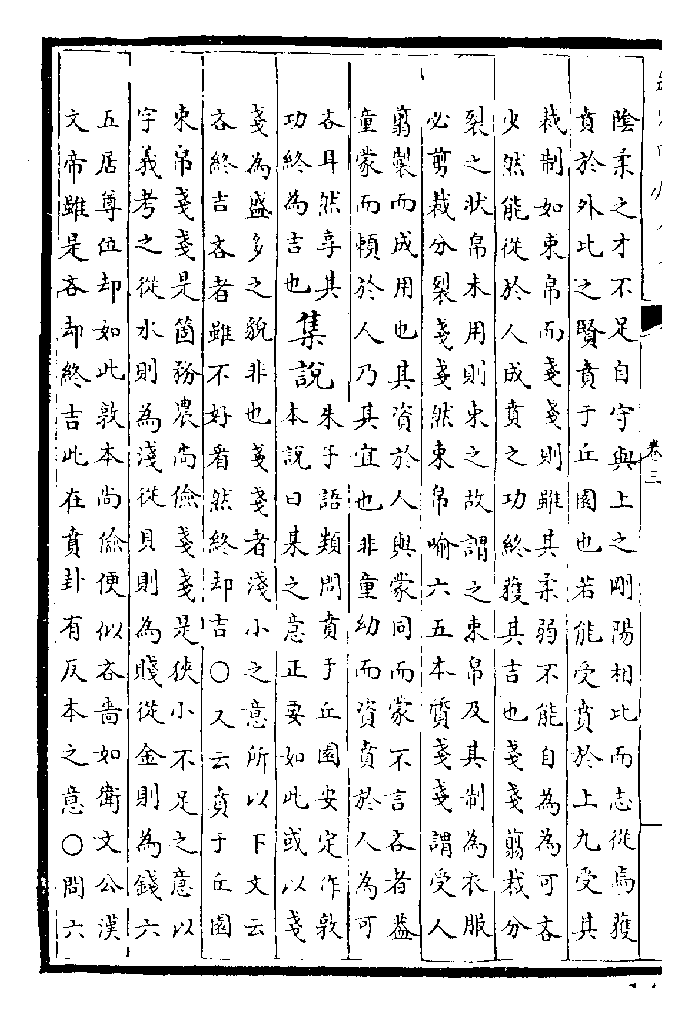 卷三
陰柔之才不足自守與上之剛陽相比而志從焉獲
賁於外比之賢賁于丘園也若能受賁於上九受其
裁制如束帛而戔戔則雖其柔弱不能自為為可吝
少然能從於人成賁之功終獲其吉也戔戔翦裁分
裂之狀帛未用則束之故謂之束帛及其制為衣服
必剪裁分裂戔戔然束帛喻六五本質戔戔謂受人
翦製而成用也其資於人與蒙同而蒙不言吝者葢
童蒙而頼於人乃其宜也非童幼而資賁於人為可
吝耳然享其
功終為吉也
集說
朱子語類問賁于丘園安定作敦
本說曰某之意正要如此或以戔
戔為盛多之貌非也戔戔者淺小之意所以下文云
吝終吉吝者雖不好看然終却吉○又云賁于丘園
束帛戔戔是箇務農尚儉戔戔是狹小不足之意以
字義考之從水則為淺從貝則為賤從金則為錢六
五居尊位却如此敦本尚儉便似吝嗇如衛文公漢
文帝雖是吝却終吉此在賁卦有反本之意○問六